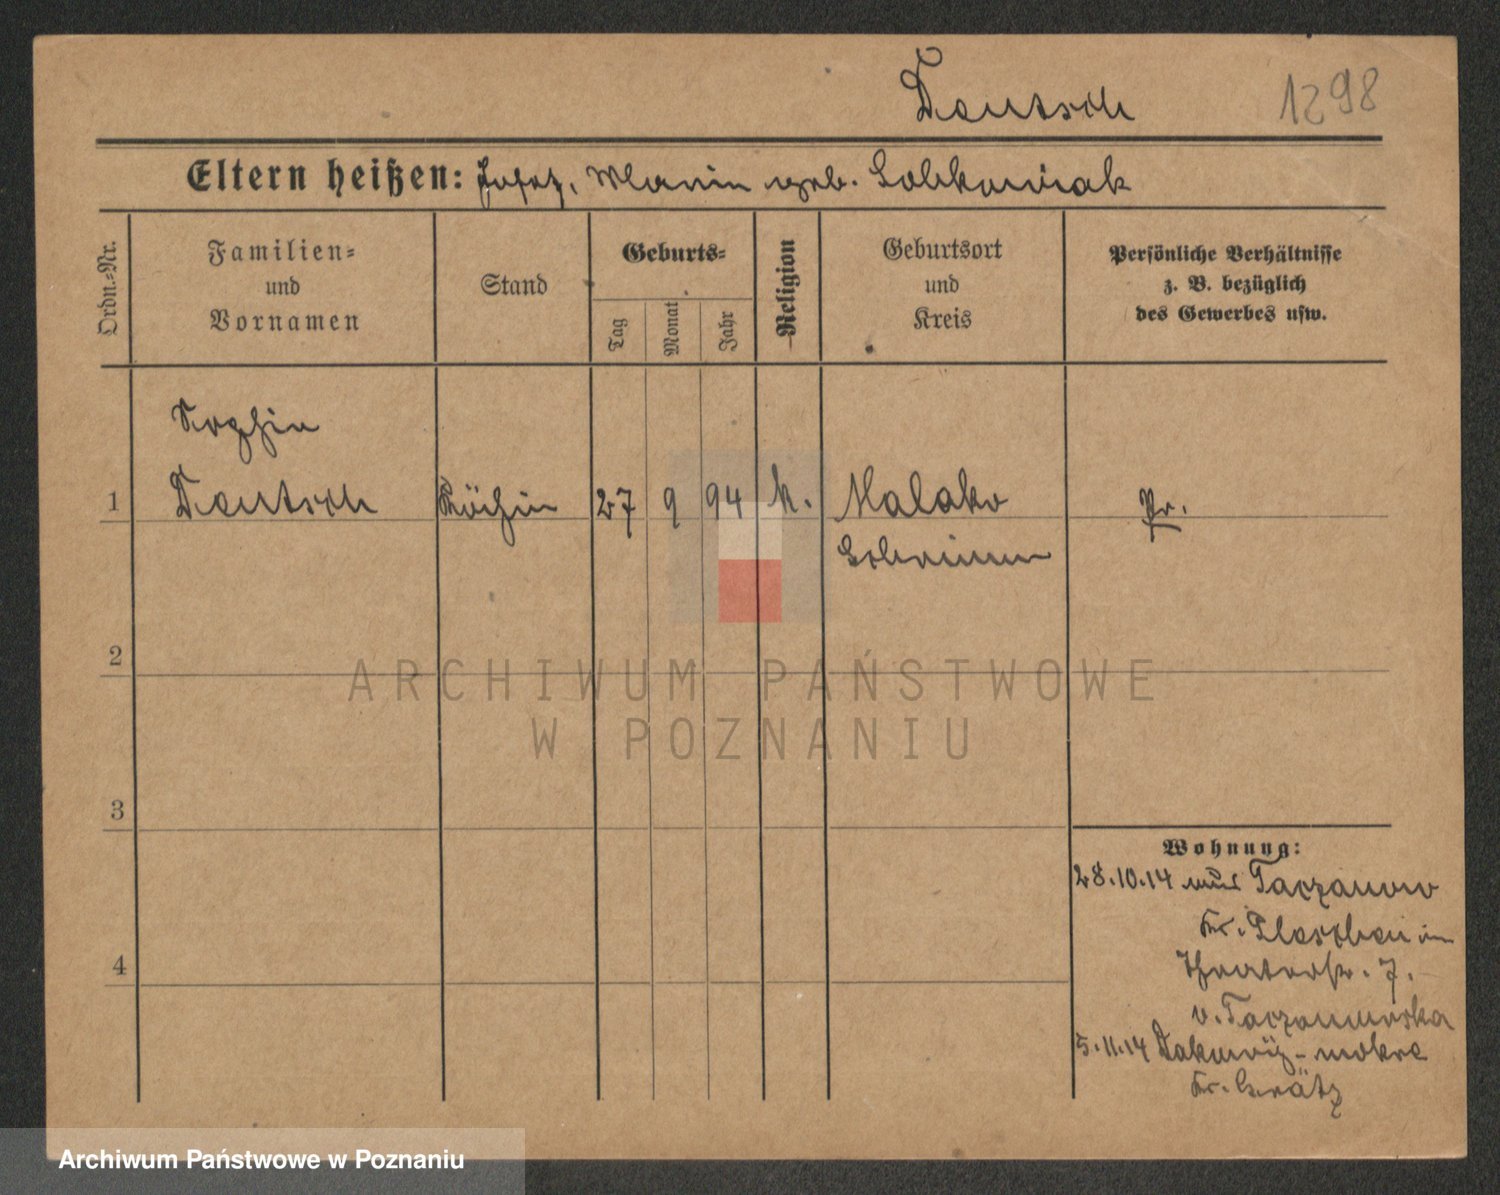 Deutsch
1298
Eltern heißen: Josef, Maria geb.
Ordn.-Nr.
Familien-
und
Vornamen
Stand
Geburts-
Tag
Monat
Jahr
Religion
Geburtsort
und
Kreis
Persönliche Verhältnisse
z. B. bezüglich
des Gewerbes usw.
Sophie
1 Deutsch Köchin 27 9 94 k. Malako Pr.
Schrimm
2
3
4
Wohnung:
28.10.14 aus Taczanowo
Kr. Pleschen in
Theaterstr. 7.
v. Taczanowska
5.11.14 Dakowy-mokre
Kr. Grätz
ARCHIWUM PAŃSTWOWE
W POZNANIU
Archiwum Państwowe w Poznaniu